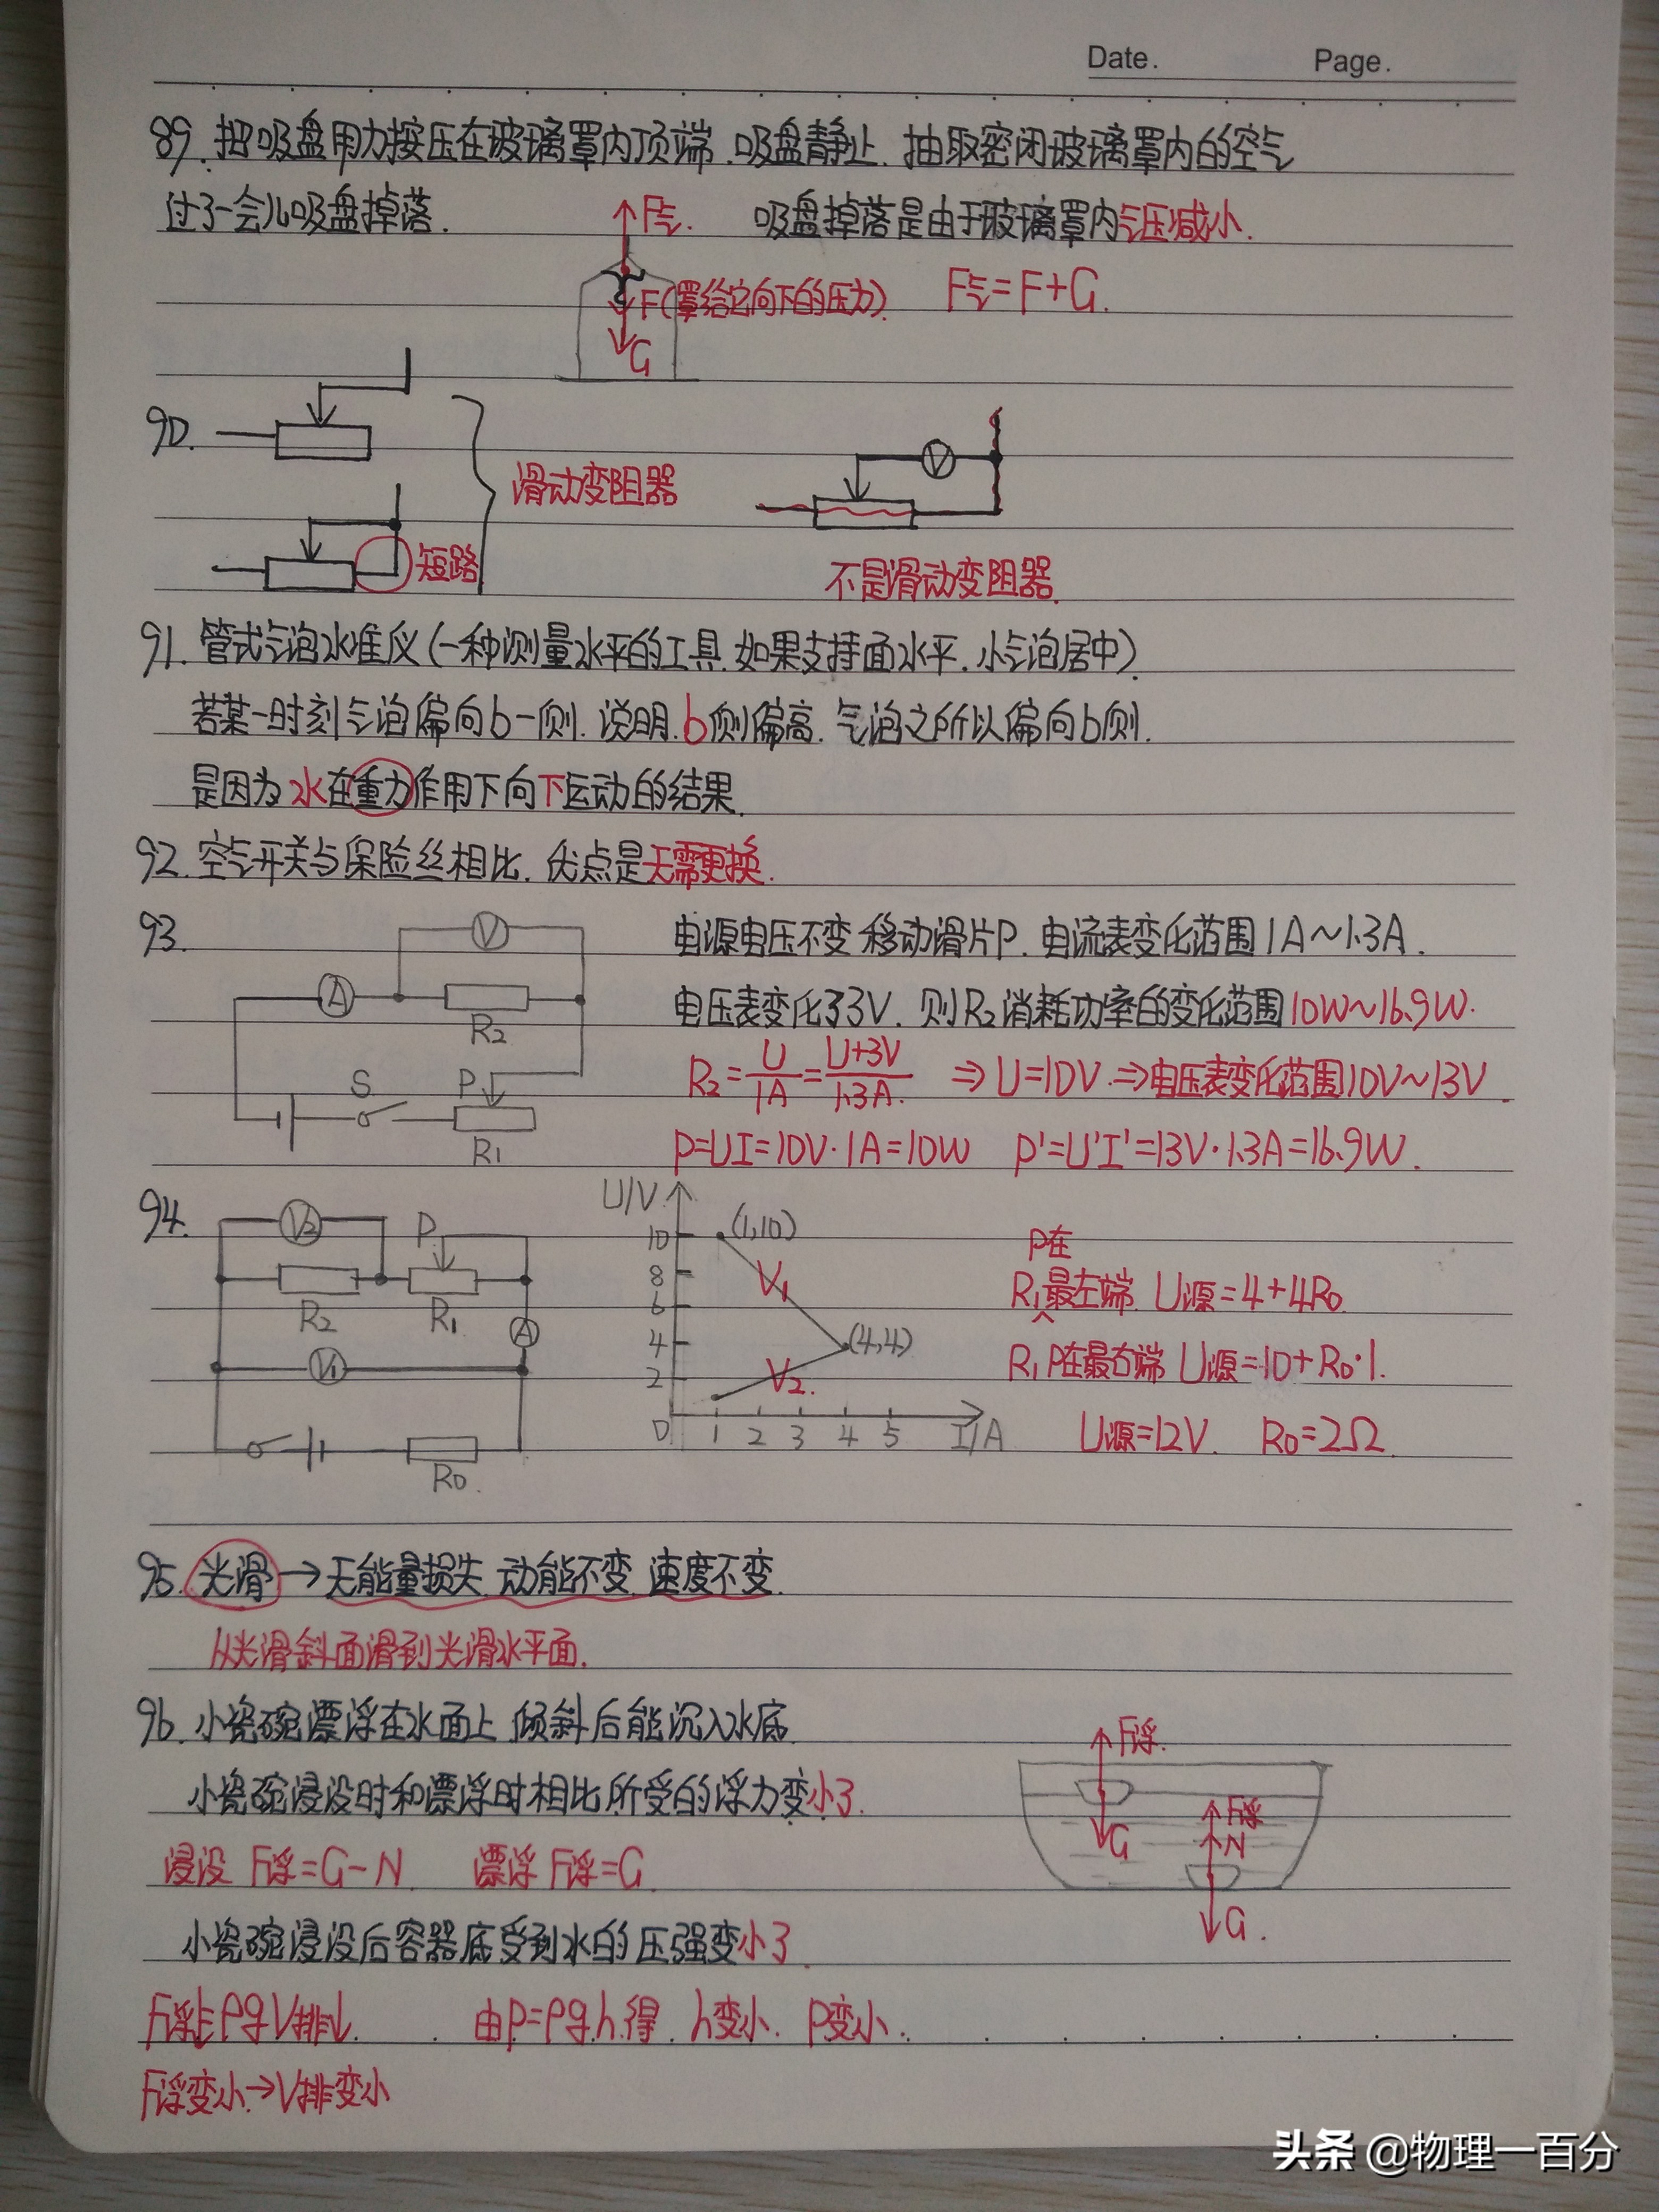 Date. Page.
89. 把吸盘用力按压在玻璃罩内顶端. 吸盘静止. 抽取密闭玻璃罩内的空气
过了一会儿吸盘掉落. F气. 吸盘掉落是由于玻璃罩内气压减小.
F(罩给它向下的压力) F气=F+G.
G
90.
滑动变阻器 V
短路 不是滑动变阻器.
91. 管式气泡水准仪(一种测量水平的工具. 如果支持面水平. 小气泡居中)
若某一时刻气泡偏向b一侧. 说明. b侧偏高. 气泡之所以偏向b侧.
是因为水在重力作用下向下运动的结果.
92. 空气开关与保险丝相比. 优点是无需更换.
93. V 电源电压不变 移动滑片P. 电流表变化范围1A~1.3A.
A R2 电压表变化了3V. 则R2消耗功率的变化范围10W~16.9W.
S P R2=U/1A=U+3V/1.3A. ⇒U=10V.⇒电压表变化范围10V~13V.
R1 P=UI=10V·1A=10W P'=U'I'=13V·1.3A=16.9W.
94. V2 P U/V 10 (1,10) P在
R2 R1 8 V1 R1最左端. U源=4+4R0.
A 6
V1 4 (4,4) R1 P在最右端 U源=10+R0·1.
2 V2.
0 1 2 3 4 5 I/A U源=12V. R0=2Ω.
R0.
95. 光滑→无能量损失. 动能不变. 速度不变.
从光滑斜面滑到光滑水平面.
96. 小瓷碗漂浮在水面上. 倾斜后能沉入水底. F浮.
小瓷碗浸没时和漂浮时相比所受的浮力变小了. F浮
G N
浸没 F浮=G-N. 漂浮 F浮=G.
小瓷碗浸没后容器底受到水的压强变小了. G.
F浮↓=ρgV排↓. 由P=ρgh.得. h变小. P变小.
F浮变小.→V排变小
头条 @物理一百分